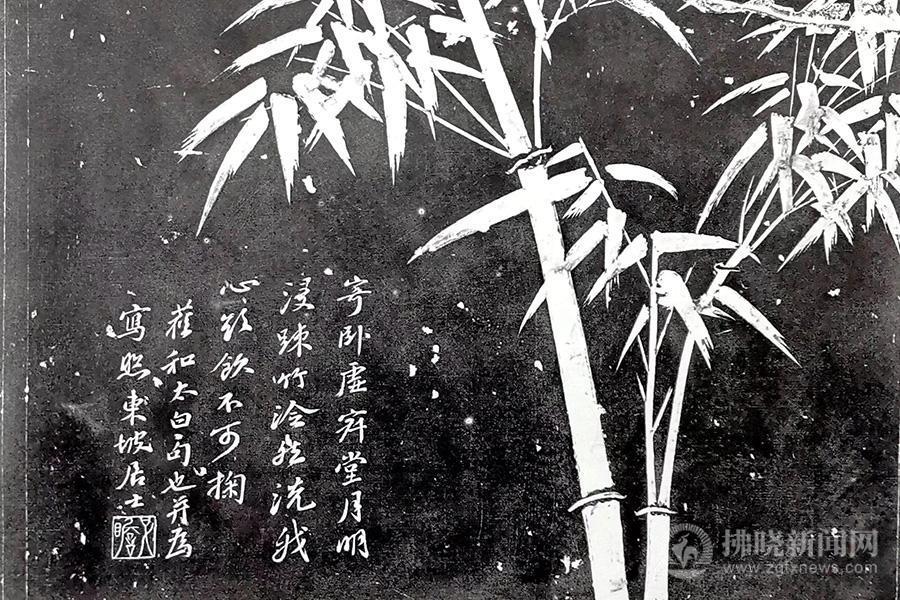 寄卧虚寂堂月明
浸疎竹泠然洗我
心欲飲不可掬
舊和太白句也并為
寫照東坡居士
子瞻
拂晓新闻网
www.zgfxnews.com